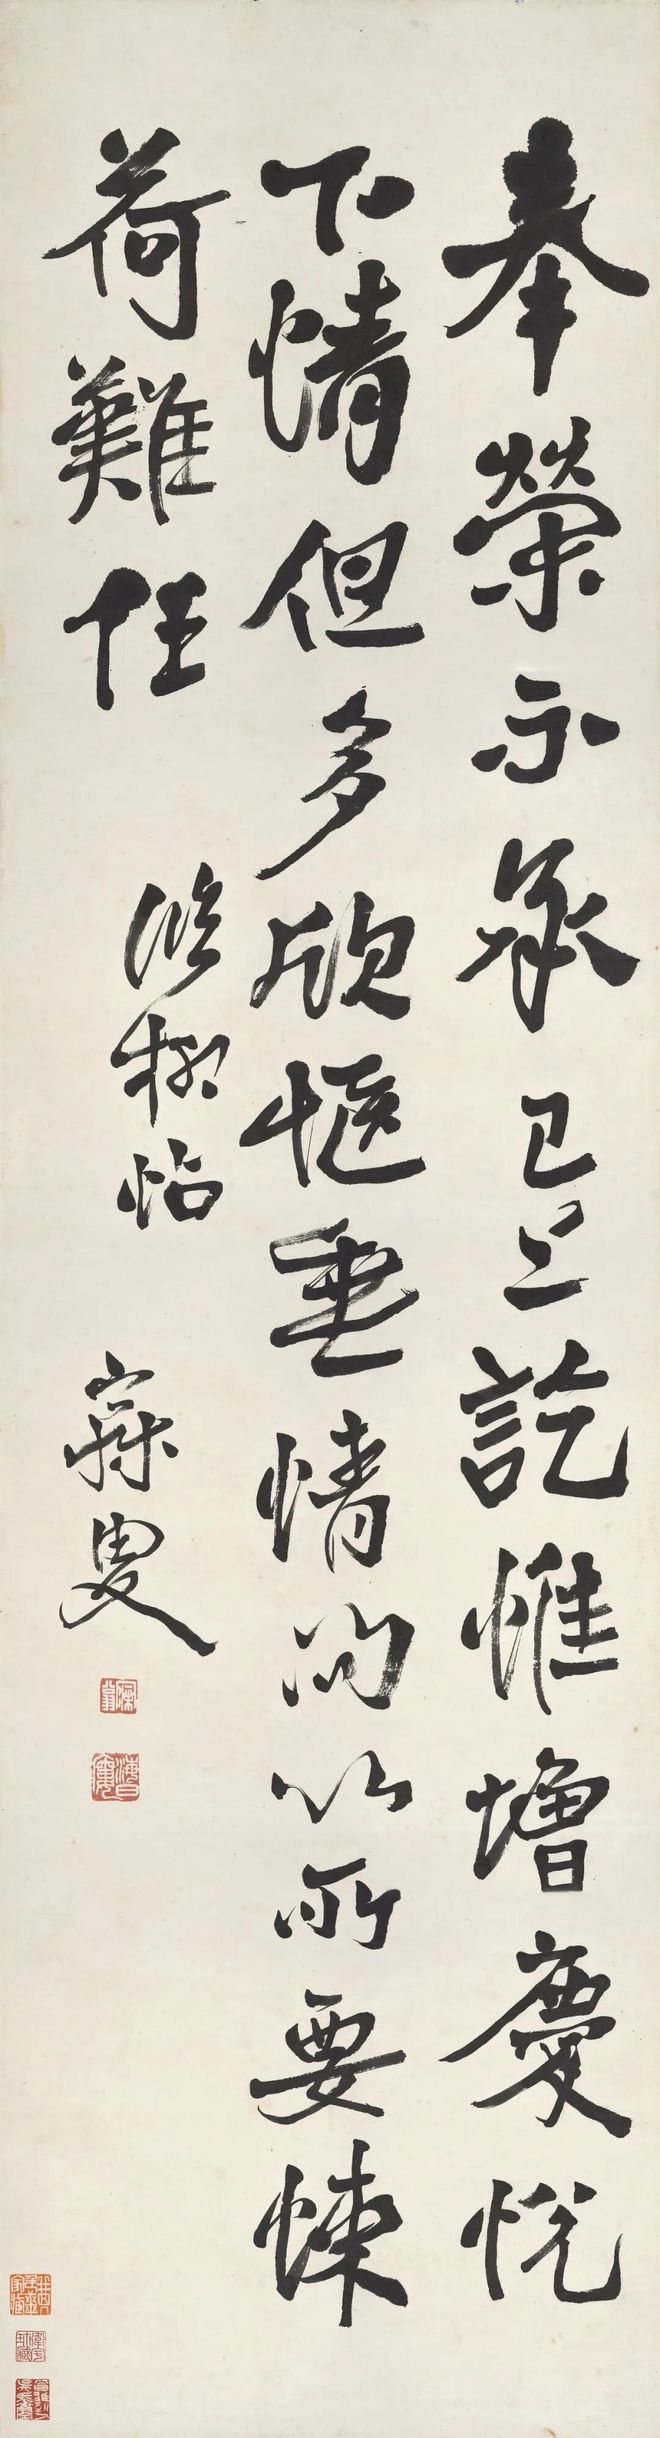 奉榮示承已上訖惟增慶悅
下情但多欣愜垂情問以所要悚
荷難任
臨柳帖
寐叟